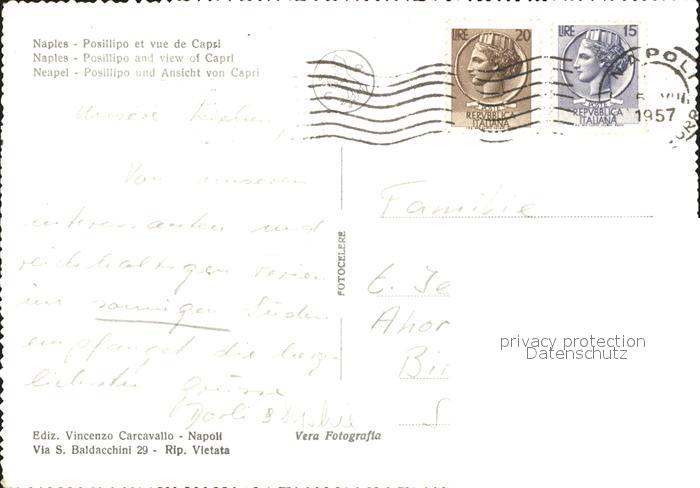 Naples - Posillipo et vue de Capri
Naples - Posillipo and view of Capri
Neapel - Posillipo und Ansicht von Capri
LIRE 20
POSTE
REPVBBLICA
ITALIANA
LIRE 15
POSTE
REPVBBLICA
ITALIANA
NAPOLI
1957
Unsere Lieben,
Von unseren
interessanten und
reichhaltigen Ferien
im sonnigen Süden
empfanget die herz-
lichsten Grüsse
FOTOCELERE
Familie
privacy protection
Datenschutz
Ediz. Vincenzo Carcavallo - Napoli
Via S. Baldacchini 29 - Rip. Vietata
Vera Fotografia